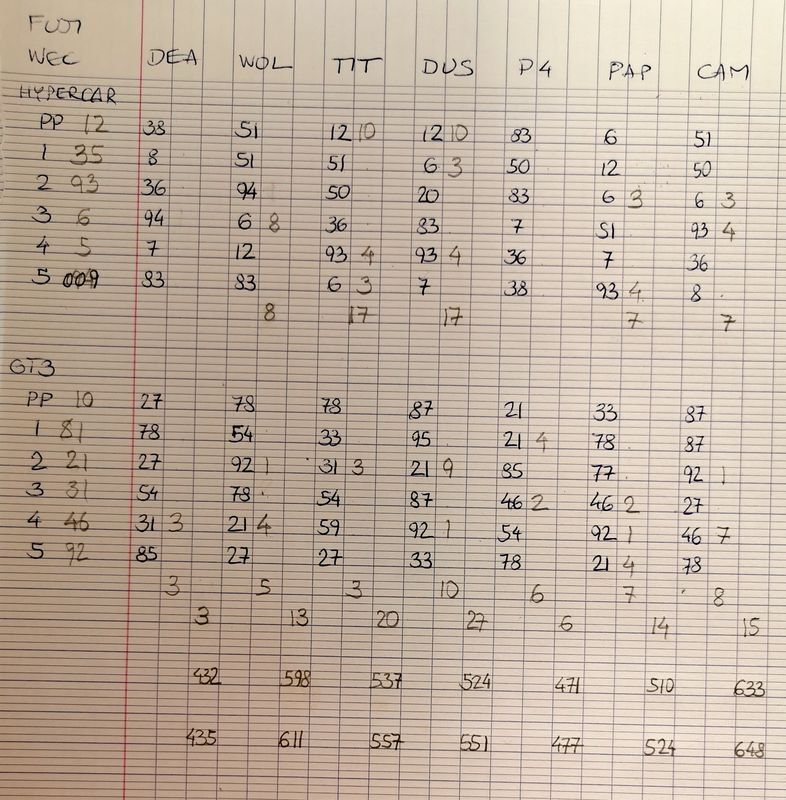 FUJI
WEC DEA WOL TIT DUS P4 PAP CAM
HYPERCAR
PP 12 38 51 12 10 12 10 83 6 51
1 35 8 51 51 6 3 50 12 50
2 93 36 94 50 20 83 6 3 6 3
3 6 94 6 8 36 83 7 51 93 4
4 5 7 12 93 4 93 4 36 7 36
5 009 83 83 6 3 7 38 93 4 8
8 17 17 7 7
GT3
PP 10 27 78 78 87 21 33 87
1 81 78 54 33 95 21 4 78 87
2 21 27 92 1 31 3 21 9 85 77 92 1
3 31 54 78 54 87 46 2 46 2 27
4 46 31 3 21 4 59 92 1 54 92 1 46 7
5 92 85 27 27 33 78 21 4 78
3 5 3 10 6 7 8
3 13 20 27 6 14 15
432 598 537 524 471 510 633
435 611 557 551 477 524 648